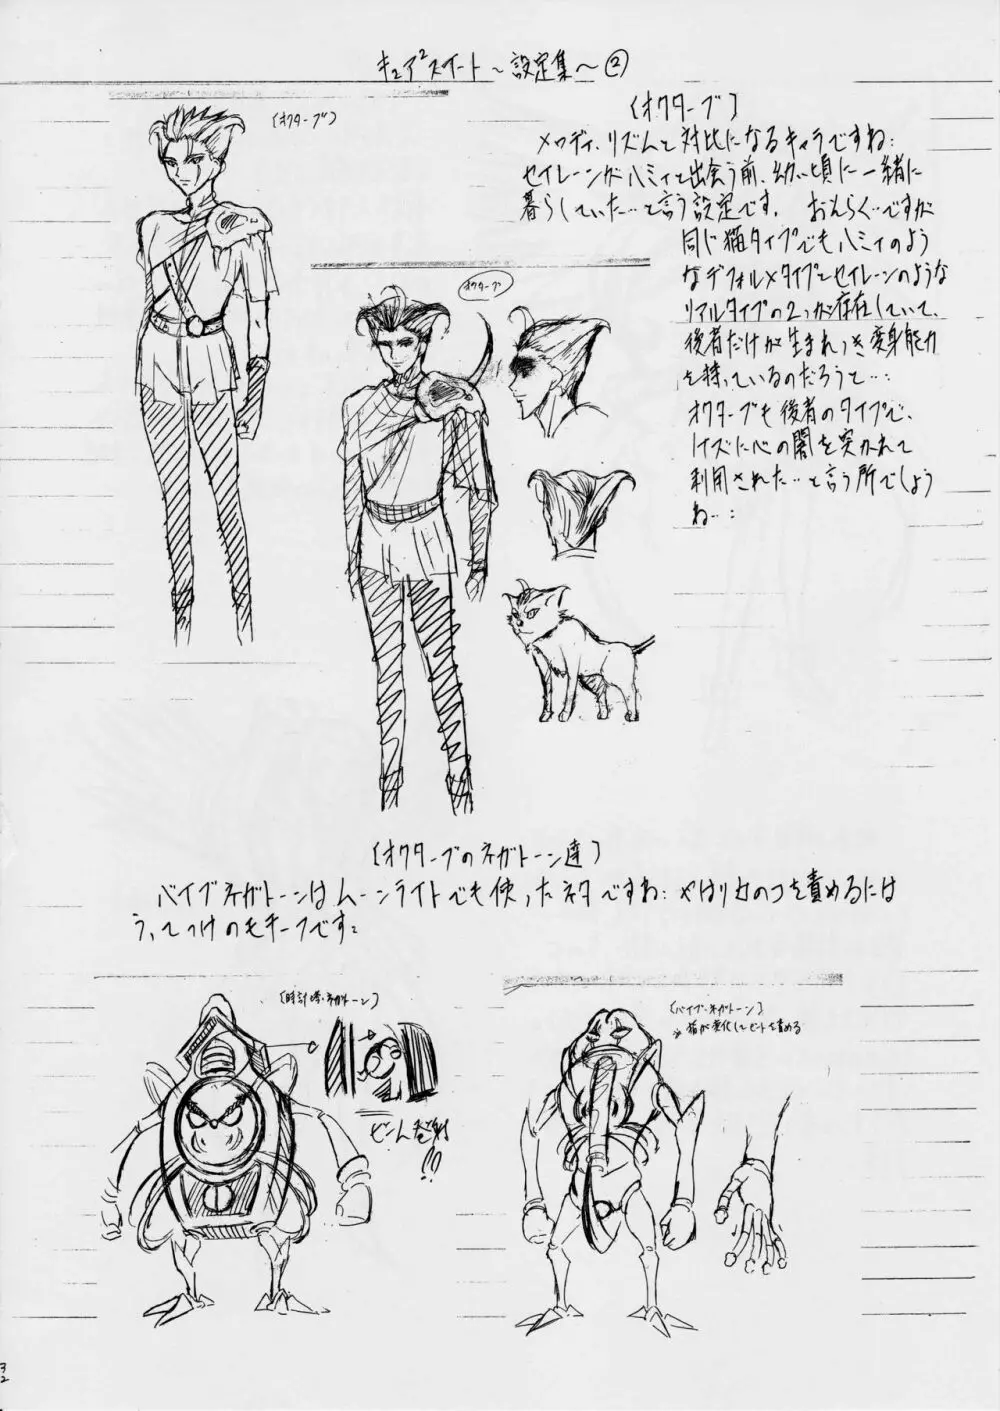 キュア²スイート～設定集～②
〔オクターブ〕
〔オクターブ〕
メロディ、リズムと対比になるキャラですね:
セイレーンがハミィと出会う前、幼い頃に一緒に
暮らしていた…と言う設定です。おそらく…ですが
同じ猫タイプでもハミィのよう
なデフォルメタイプとセイレーンのような
リアルタイプの2つが存在していて、
後者だけが生まれつき変身能力
を持っているのだろうと…:
オクターブも後者のタイプで、
ノイズに心の闇を突かれて
利用された…と言う所でしょう
ね…:
オクターブ
〔オクターブのネガトーン達〕
バイブネガトーンはムーンライトでも使ったネタですね: やはり女のコを責めるには
うってつけのモチーフです:
〔時計塔・ネガトーン〕
ビーム発射!!
〔バイブ・ネガトーン〕
32